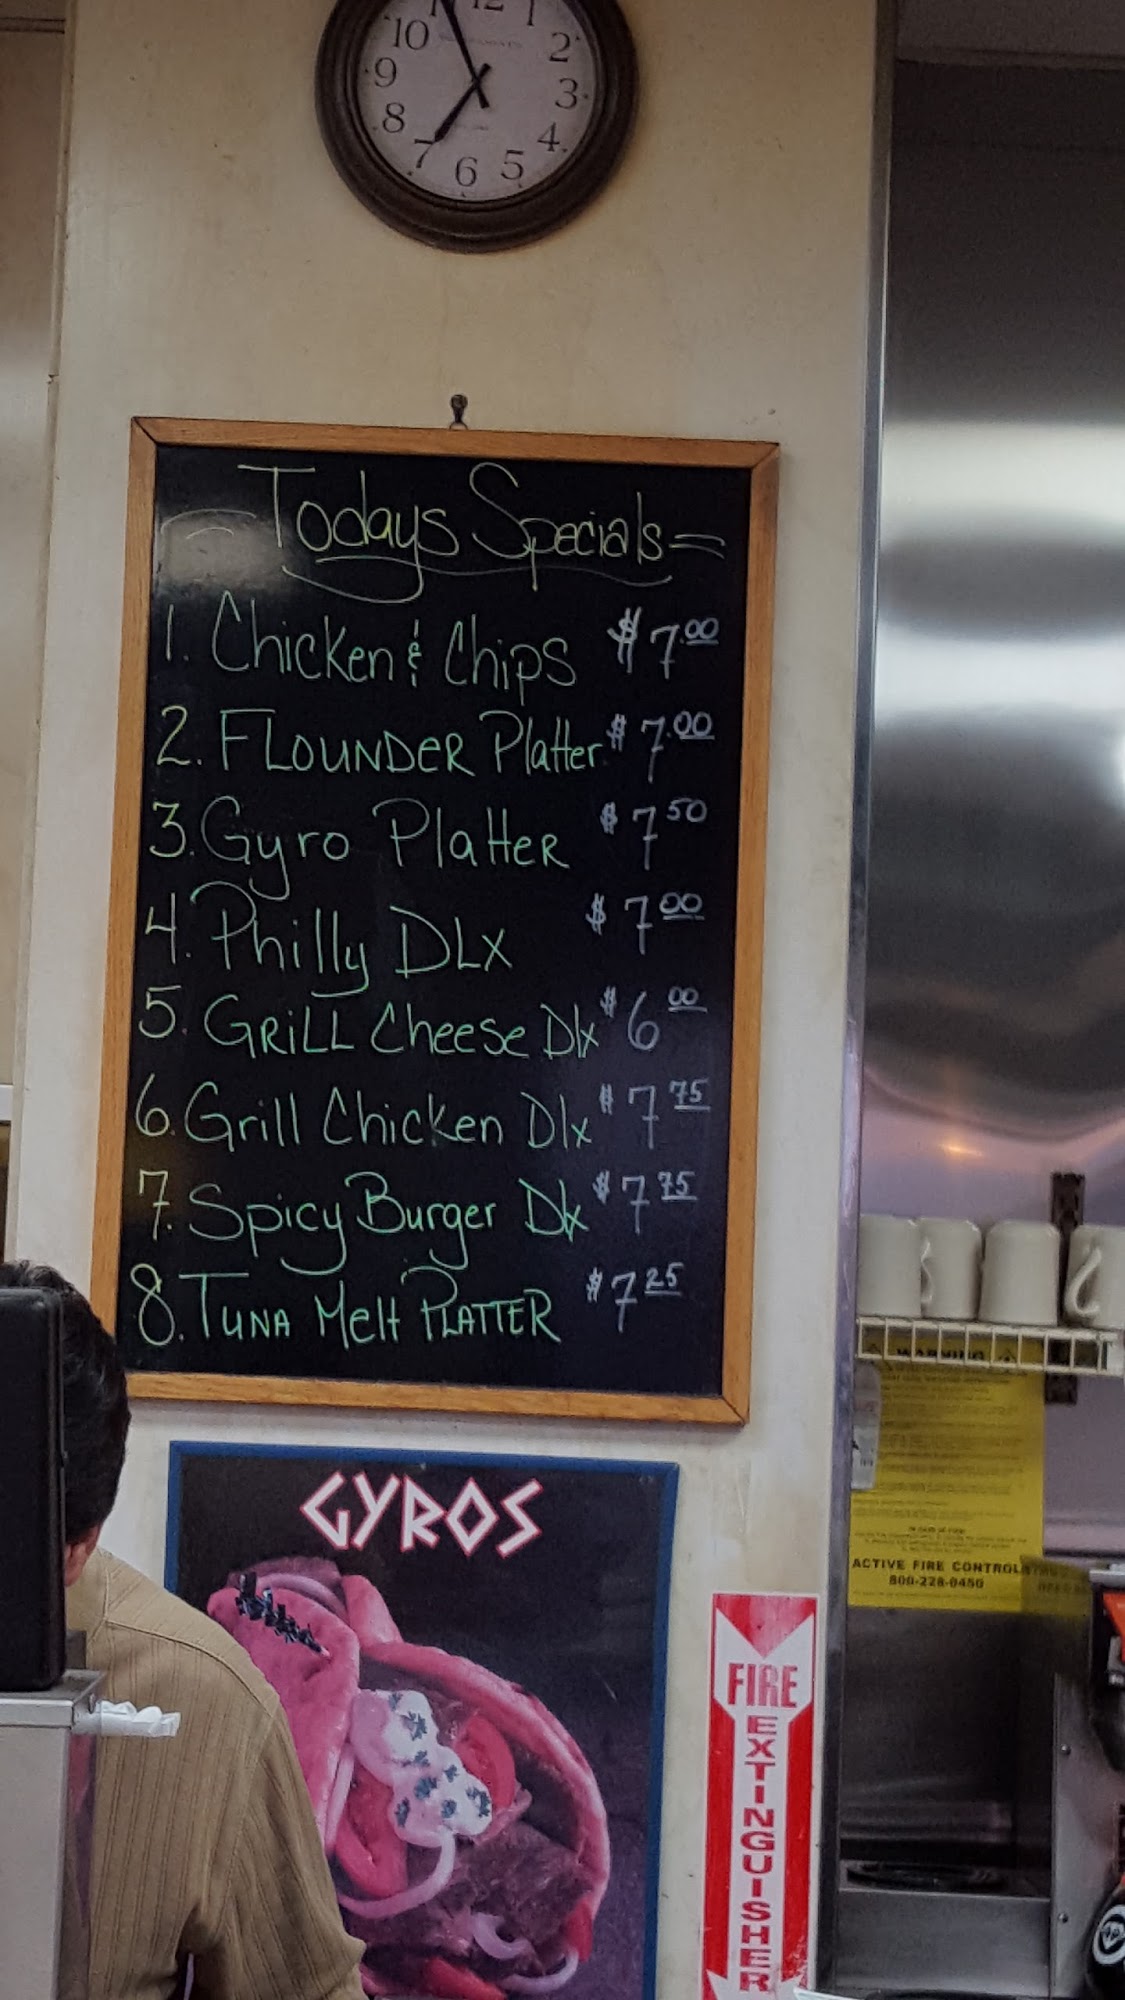 11 12 1
10 2
9 3
8 4
7 6 5
Todays Specials
1. Chicken & Chips $7.00
2. FLOUNDER Platter $7.00
3. Gyro Platter $7 50
4. Philly DLX $7 00
5. GRILL Cheese Dlx $6 00
6. Grill Chicken Dlx $7 75
7. Spicy Burger Dlx $7 75
8. TUNA Melt PLATTER $7 25
GYROS
WARNING
ACTIVE FIRE CONTROL
800-228-0450
FIRE
EXTINGUISHER